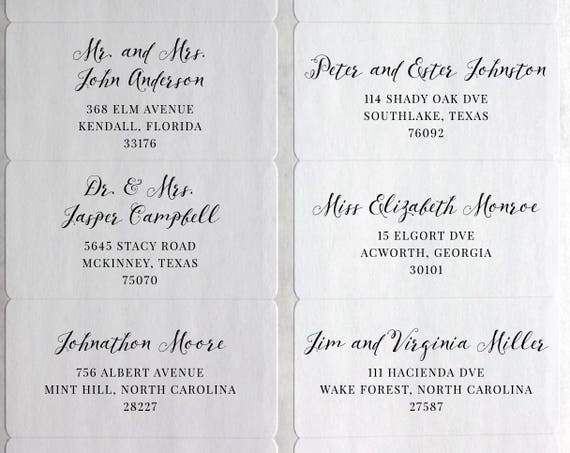 Mr. and Mrs.
John Anderson
368 ELM AVENUE
KENDALL, FLORIDA
33176
Peter and Ester Johnston
114 SHADY OAK DVE
SOUTHLAKE, TEXAS
76092
Dr. & Mrs.
Jasper Campbell
5645 STACY ROAD
MCKINNEY, TEXAS
75070
Miss Elizabeth Monroe
15 ELGORT DVE
ACWORTH, GEORGIA
30101
Johnathon Moore
756 ALBERT AVENUE
MINT HILL, NORTH CAROLINA
28227
Jim and Virginia Miller
111 HACIENDA DVE
WAKE FOREST, NORTH CAROLINA
27587